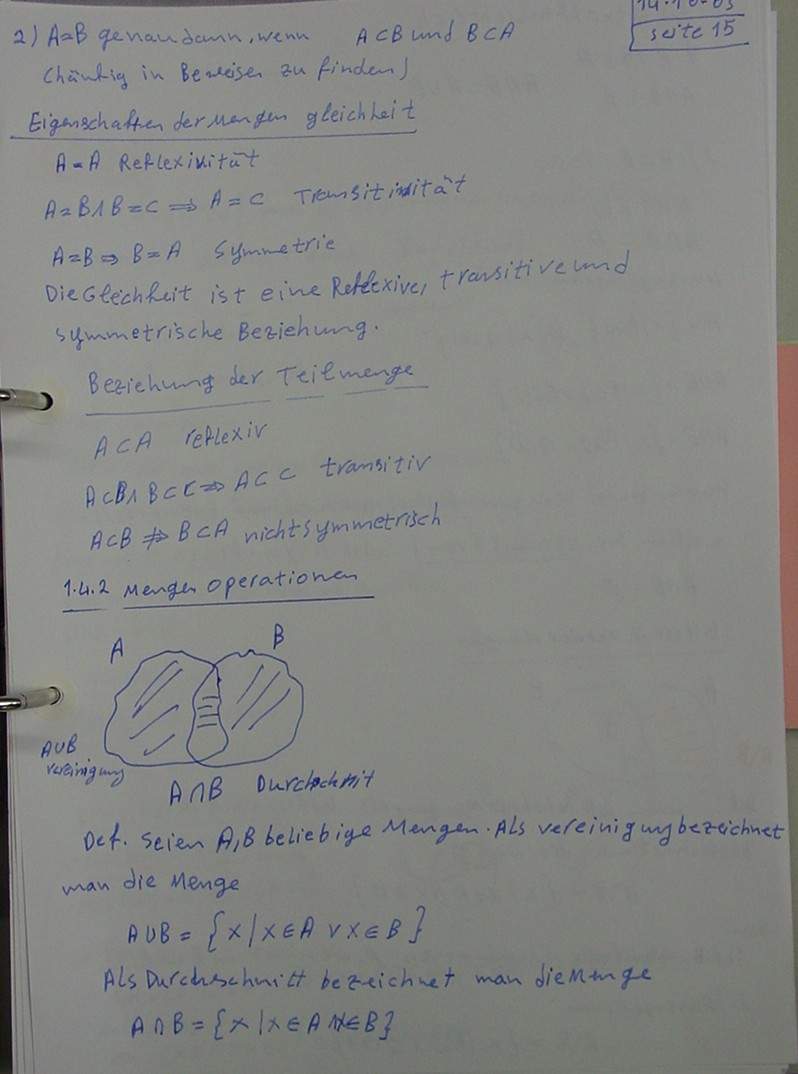 14.10.03
Seite 15
2) A=B genau dann, wenn A⊂B und B⊂A
(häufig in Beweisen zu finden)
Eigenschaften der Mengen gleichheit
A=A Reflexivität
A=B∧B=C ⇒ A=C Transitivität
A=B ⇒ B=A Symmetrie
Die Gleichheit ist eine Reflexive, transitive und
symmetrische Beziehung.
Beziehung der Teilmenge
A⊂A reflexiv
A⊂B∧B⊂C ⇒ A⊂C transitiv
A⊂B ⇏ B⊂A nicht symmetrisch
1.4.2 Mengen operationen
A B
A∪B
Vereinigung
A∩B Durchschnit
Def. Seien A,B beliebige Mengen. Als Vereinigung bezeichnet
man die Menge
A∪B = {x | x∈A ∨ x∈B}
Als Durchschnitt bezeichnet man die Menge
A∩B = {x | x∈A ∧ x∈B}